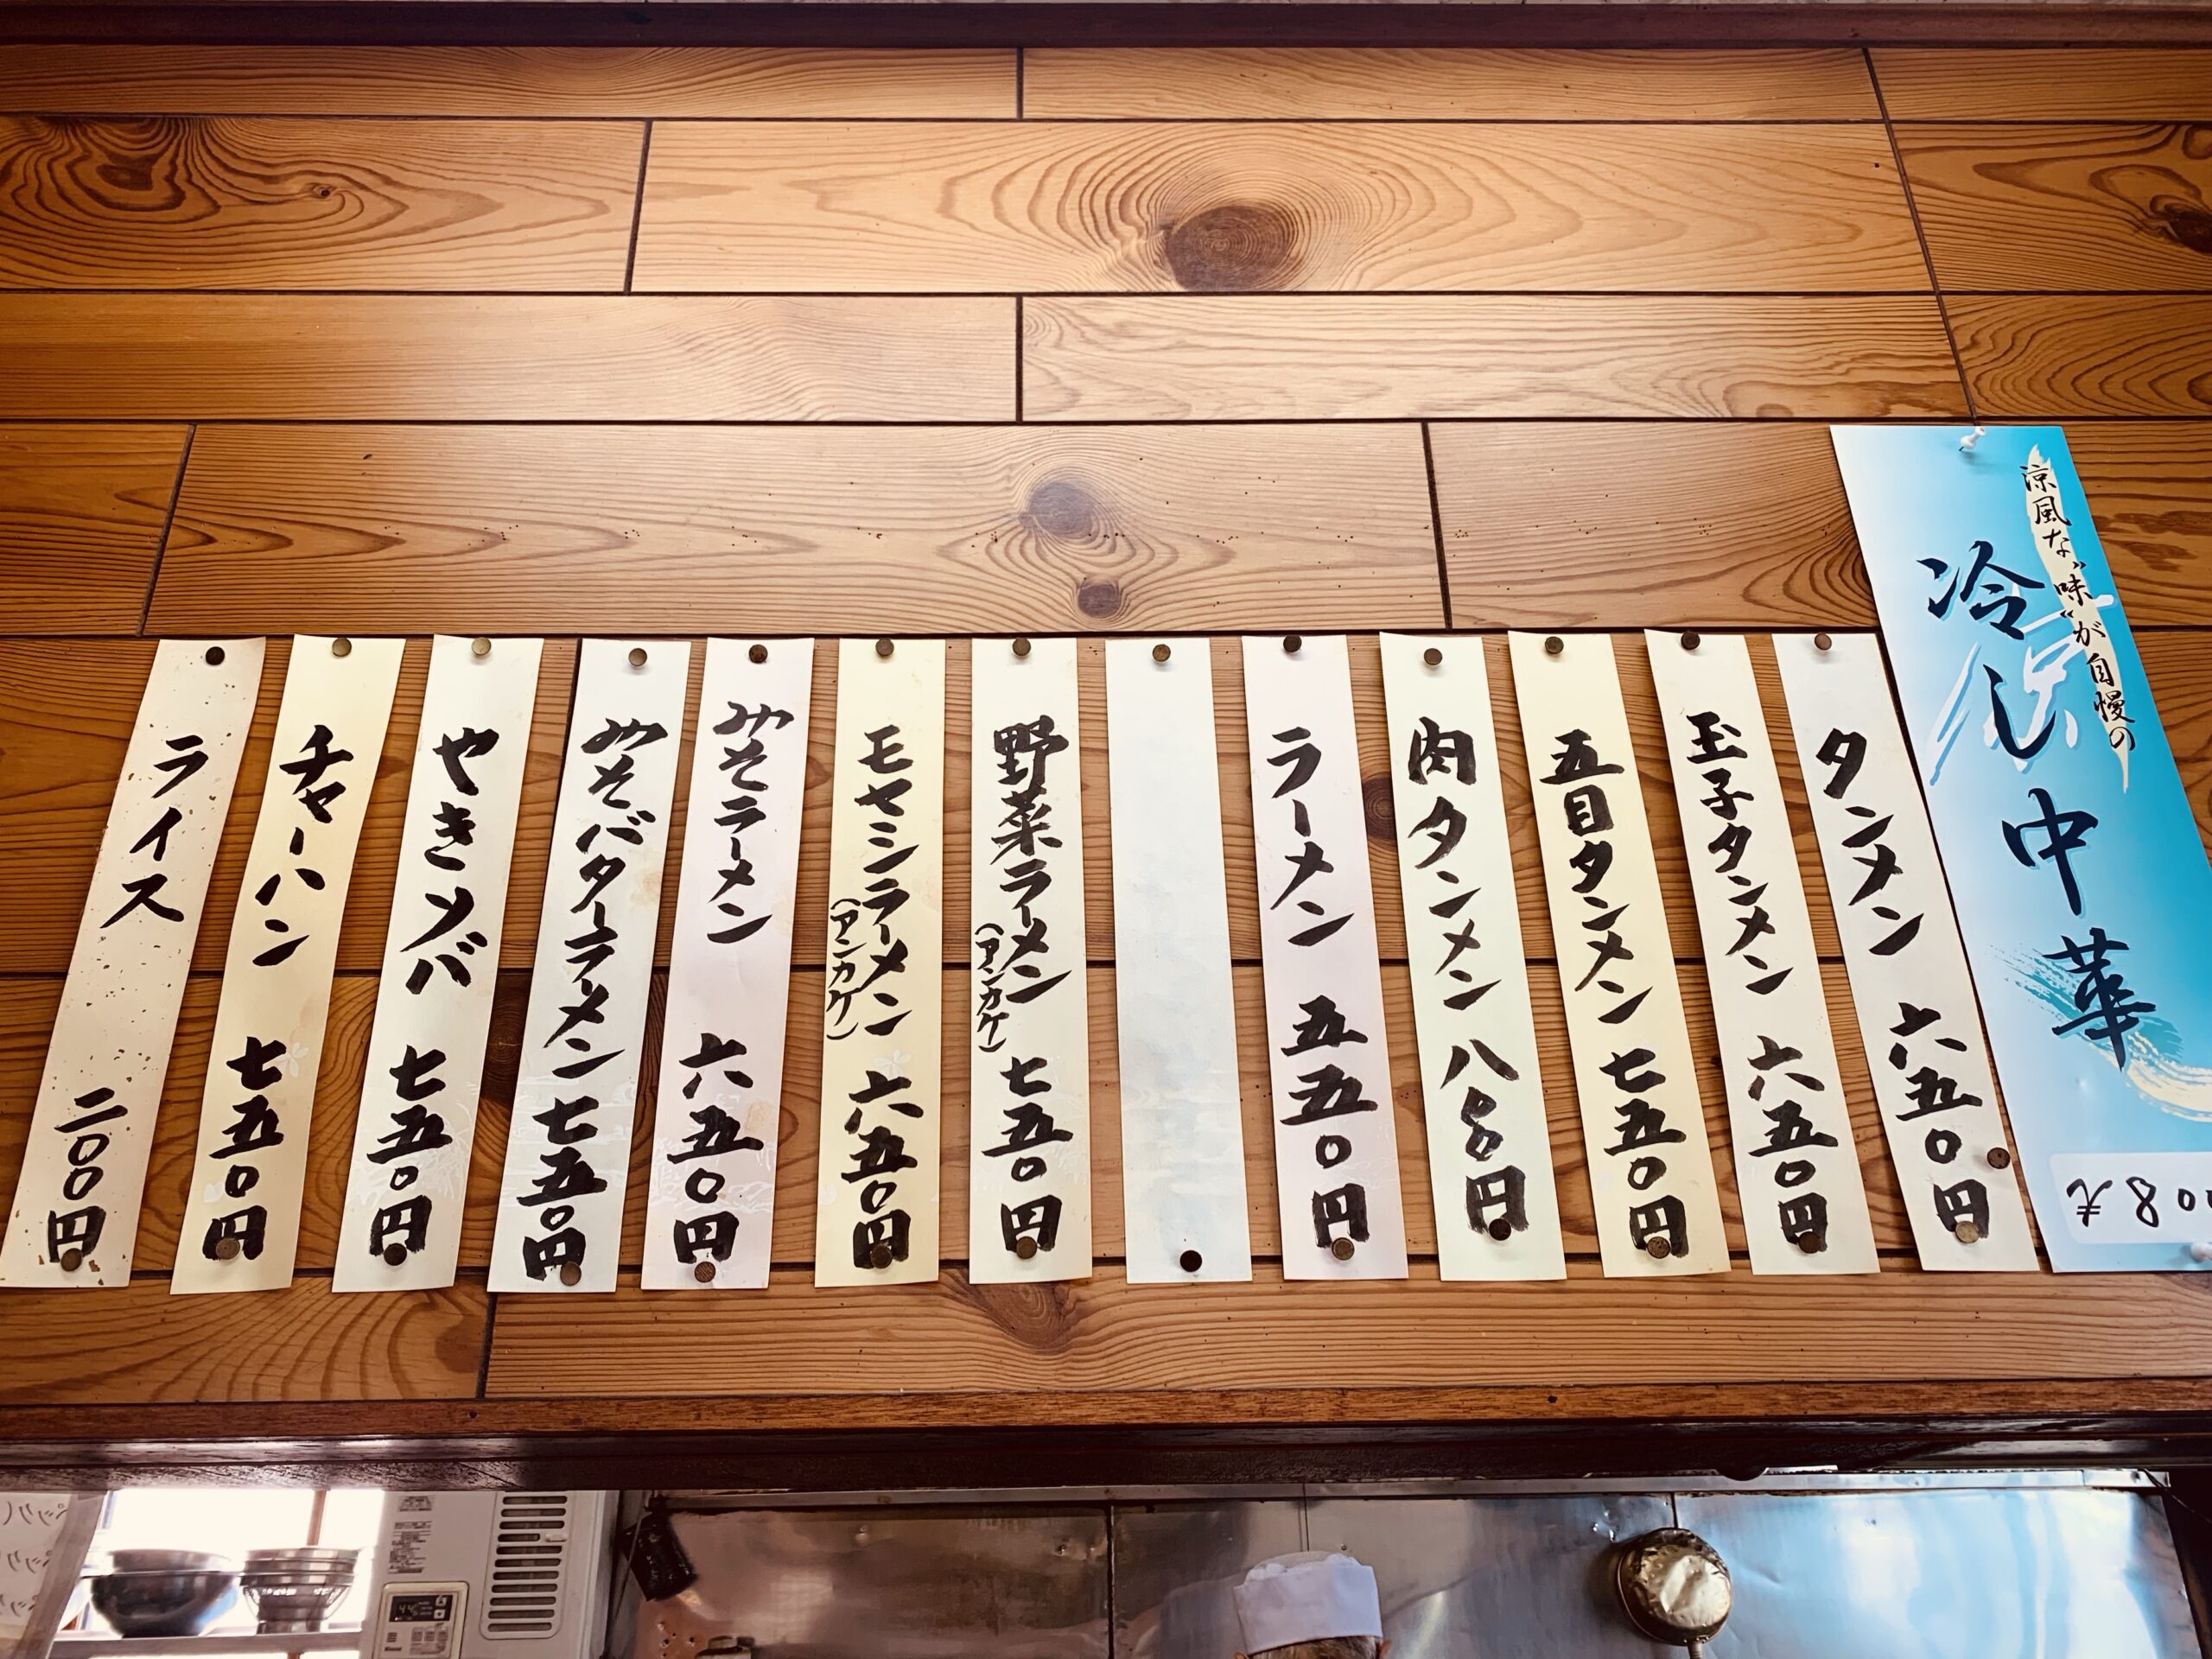 涼風な〝味〟が自慢の
冷し中華
タンメン 六五〇円
玉子タンメン 六五〇円
五目タンメン 七五〇円
肉タンメン
ラーメン 五五〇円
野菜ラーメン 七五〇円
(アンカケ)
モヤシラーメン 六五〇円
(アンカケ)
みそラーメン 六五〇円
みそバターラーメン 七五〇円
やきソバ 七五〇円
チャーハン 七五〇円
ライス 二〇〇円